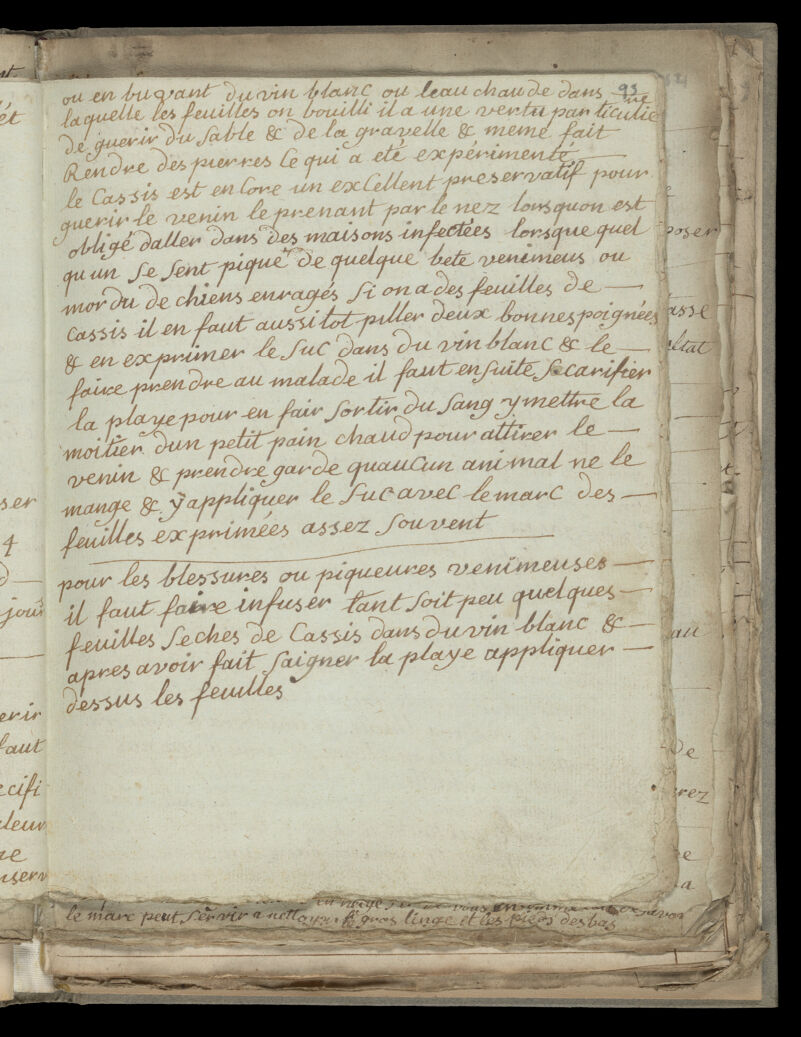 93
ou en buvant du vin blanc ou leau chaude dans
laquelle les feuilles on bouilli il a une vertu particuliere
de guerir du sable & de la gravelle & meme fait
Rendre des pierres ce qui a eté expérimenté
le Cassis est encore un excellent preservatif pour
guerir le venin le prenant par le nez lorsquon est
obligé daller dans des maisons infectées lorsque quel
qu un se sent piqué de quelque bete venimeus ou
mordu de chiens enragés si on a des feuilles de
cassis il en faut aussitot piller deux bonnes poignées
& en exprimer le suc dans du vin blanc & le
faire prendre au malade il faut ensuite scarifier
la playe pour en fair sortir du sang y mettre la
moitier dun petit pain chaud pour attirer le
venin & prendre garde quaucun animal ne le
mange & y appliquer le suc avec le marc des
feuilles exprimées assez souvent
pour les blessures ou piqueures venimeuses
il faut faire infuser tant soit peu quelques
feuilles seches de Cassis dans du vin blanc &
apres avoir fait saigner la playe appliquer
dessus les feuilles
le marc peut servir a nettoyer le gros linge et les pieds des bas